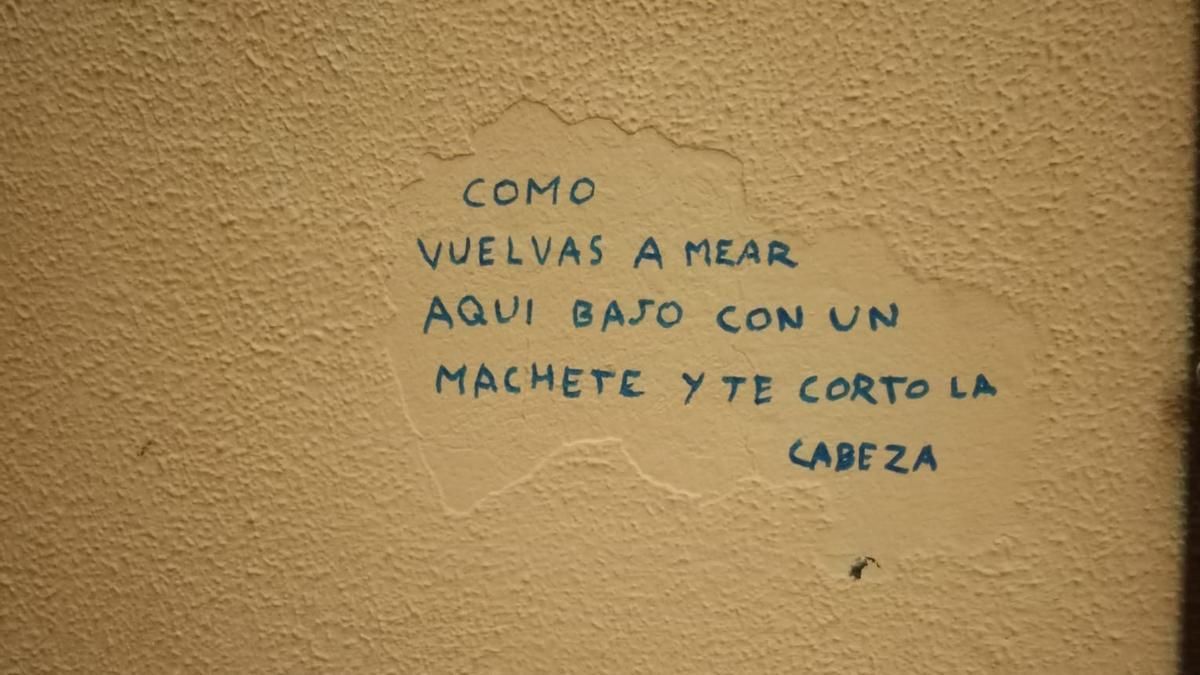 COMO
VUELVAS A MEAR
AQUI BAJO CON UN
MACHETE Y TE CORTO LA
CABEZA